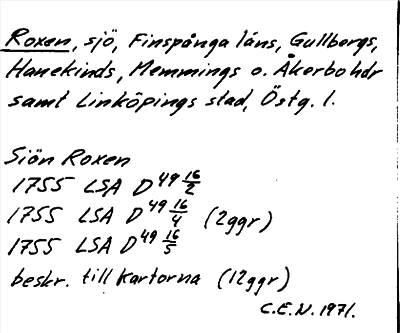 Roxen, sjö, Finspånga läns, Gullbergs,
Hanekinds, Memmings o. Åkerbo hdr
samt Linköpings stad, Östg. l.
Sjön Roxen
1755 LSA D49 16/2
1755 LSA D49 16/4 (2ggr)
1755 LSA D49 16/5
beskr. till kartorna (12ggr)
C.E.N. 1971.